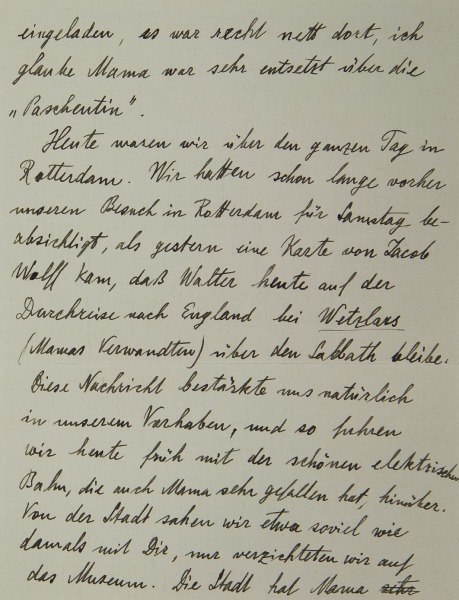 eingeladen, es war recht nett dort, ich
glaube Mama war sehr entsetzt über die
„Paschentin“.
Heute waren wir über den ganzen Tag in
Rotterdam. Wir hatten schon lange vorher
unseren Besuch in Rotterdam für Samstag be-
absichtigt, als gestern eine Karte von Jacob
Wolff kam, daß Walter heute auf der
Durchreise nach England bei Wetzlars
(Mamas Verwandten) über den Sabbath bleibe.
Diese Nachricht bestärkte uns natürlich
in unserem Vorhaben, und so fuhren
wir heute früh mit der schönen elektrischen
Bahn, die auch Mama sehr gefallen hat, hinüber.
Von der Stadt sahen wir etwa soviel wie
damals mit Dir, nur verzichteten wir auf
das Museum. Die Stadt hat Mama sehr